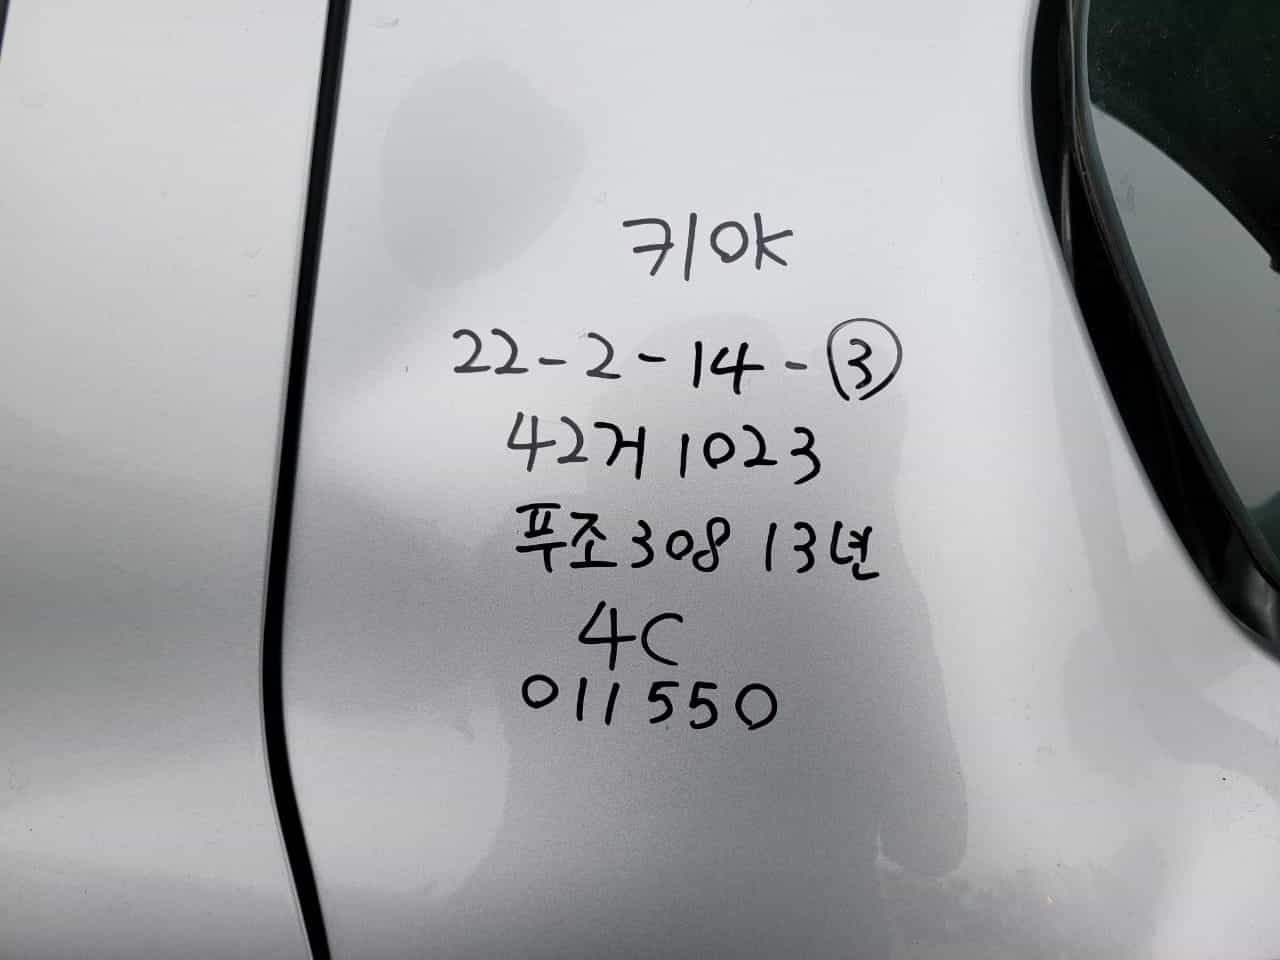 키OK
22-2-14-③
42거 1023
푸조308 13년
4C
011550